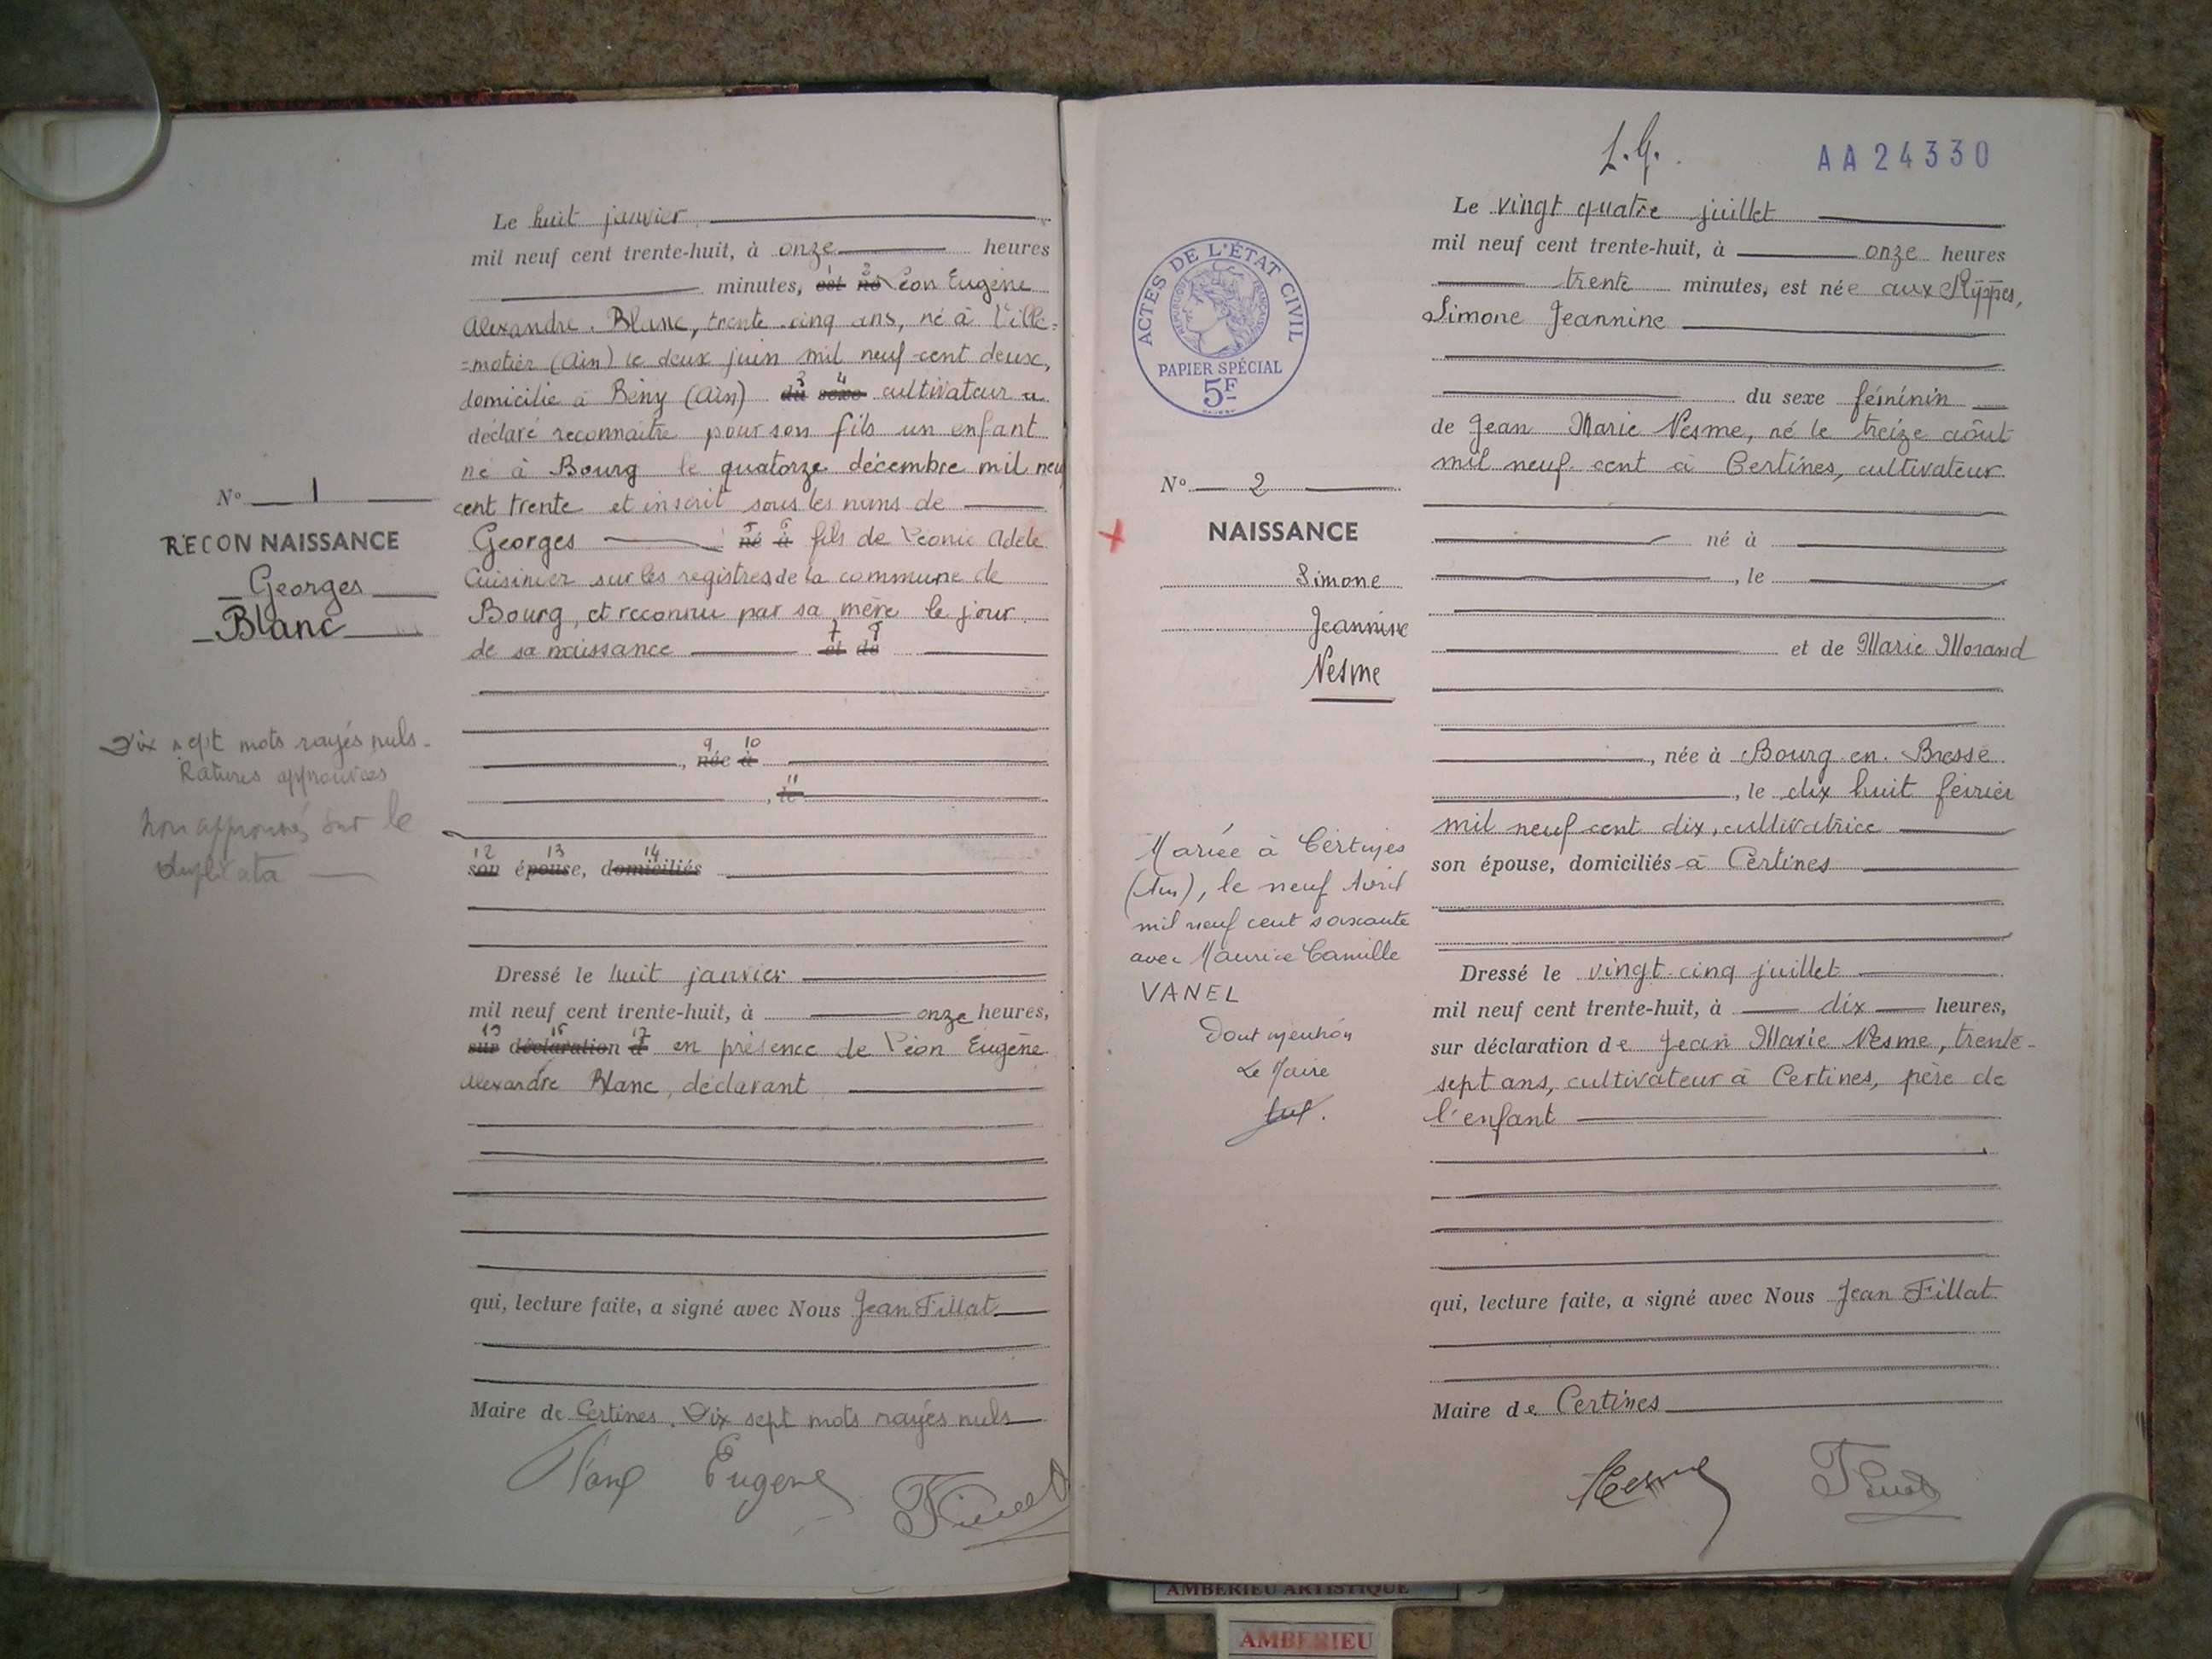 N° 1
RECONNAISSANCE
Georges
Blanc
Dix sept mots rayés nuls.
Ratures approuvées
non approuvés sur le
duplicata
Le huit janvier
mil neuf cent trente-huit, à onze heures
minutes, est né Léon Eugène
Alexandre Blanc, trente cinq ans, né à Ville=
=motier (Ain) le deux juin mil neuf cent deux,
domicilié à Bény (Ain) du sexe cultivateur a
déclaré reconnaitre pour son fils un enfant
né à Bourg le quatorze décembre mil neuf
cent trente et inscrit sous les noms de
Georges né à fils de Léonie Adèle
Cuisinier sur les registres de la commune de
Bourg, et reconnu par sa mère le jour
de sa naissance et de
, née à
, le
son épouse, domiciliés
Dressé le huit janvier
mil neuf cent trente-huit, à onze heures,
sur déclaration d en présence de Léon Eugène
Alexandre Blanc, déclarant
qui, lecture faite, a signé avec Nous Jean Fillat
Maire de Certines. Dix sept mots rayés nuls
Blanc Eugene Fillat
L.G.
AA24330
ACTES DE L'ÉTAT CIVIL
RÉPUBLIQUE FRANÇAISE
PAPIER SPÉCIAL
5F
N° 2
NAISSANCE
Simone
Jeannine
Nesme
Mariée à Certines
(Ain), le neuf Avril
mil neuf cent soixante
avec Maurice Camille
VANEL
Dont mention
Le Maire
Le vingt quatre juillet
mil neuf cent trente-huit, à onze heures
trente minutes, est née aux Rippes,
Simone Jeannine
du sexe féminin
de Jean Marie Nesme, né le treize août
mil neuf cent à Certines, cultivateur
né à
, le
et de Marie Morand
, née à Bourg en Bresse
, le dix huit février
mil neuf cent dix, cultivatrice
son épouse, domiciliés à Certines
Dressé le vingt-cinq juillet
mil neuf cent trente-huit, à dix heures,
sur déclaration de Jean Marie Nesme, trente-
sept ans, cultivateur à Certines, père de
l'enfant
qui, lecture faite, a signé avec Nous Jean Fillat
Maire de Certines
Nesme Fillat
AMBERIEU ARTISTIQUE
AMBERIEU